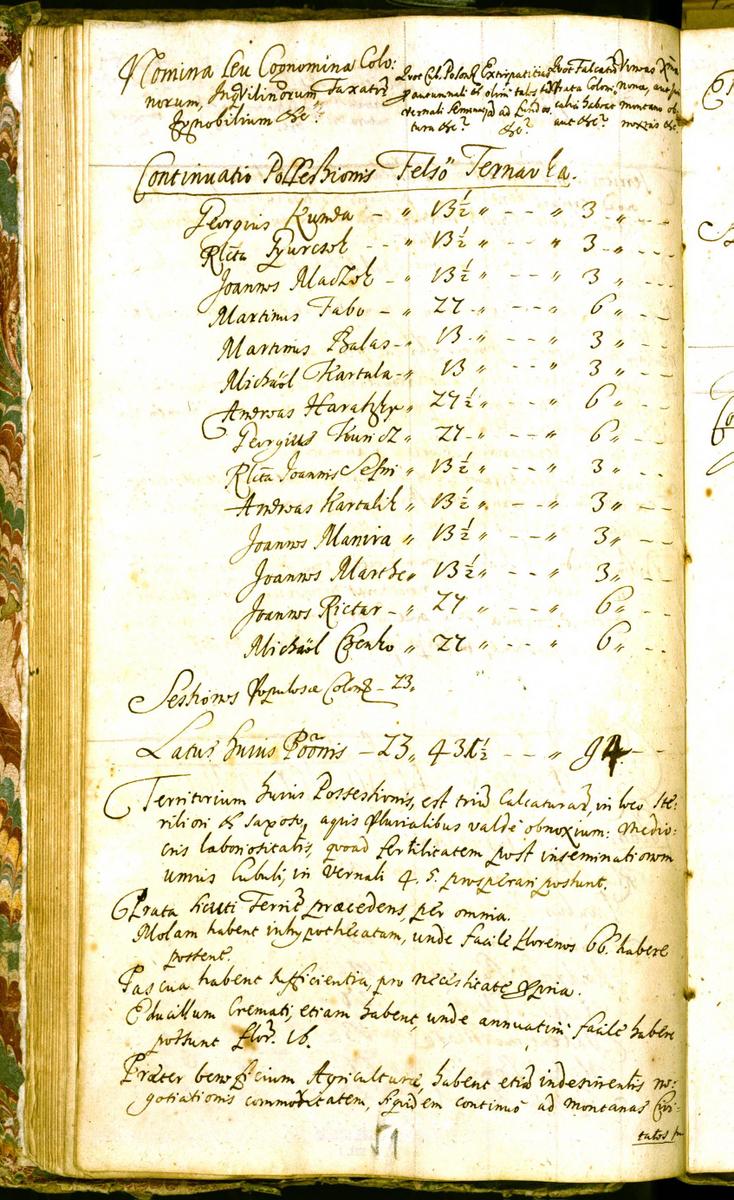 Nomina seu Cognomina Colo:
norum, Inqvilinorum Taxatist:
Ignobilium &c:
Qvot Cub. Poson.
pro autumnali et
vernali seminat.
&c:
Extirpatitias
olim
ad
&c:
Qvot Falcat.
Prata Coloni
habent
aut &c:
Vineas
nona, aut
montano
noxias &c:
Continuatio Possessionis Felsö Ternavka.
Georgius Kunda - " 13½ " - - " 3 " - -
Rlcta Gyurcsok - - " 13½ " - - " 3 " - -
Joannes Maczok - " 13½ " - - " 3 " - -
Martinus Fabo - " 27 " - - " 6 " - -
Martinus Balas - " 13 " - - " 3 " - -
Michaël Kartala - " 13 " - - " 3 " - -
Andreas " 27½ " - - " 6 " - -
Georgius Kuricz " 27 " - - " 6 " - -
Rlcta Joannis " 13½ " - - " 3 " - -
Andreas Kartalik " 13½ " - - " 3 " - -
Joannes Manira " 13½ " - - " 3 " - -
Joannes " 13½ " - - " 3 " - -
Joannes Rictar - " 27 " - - " 6 " - -
Michaël Czenko " 27 " - - " 6 " - -
Sessiones Populosæ Colon. - 23.
Latus huius Poonis - 23 " - - " 94 - -
Territorium huius Possessionis, est trium Calcaturarum, in loco ste:
riliori et saxoso, aquis Pluvialibus valde obnoxium: medio:
cris laboriositatis, quoad fertilitatem post inseminationem
unius Cubuli, in vernali 4. 5. prosperari possunt.
Prata sicuti Terrm præcedens, per omnia.
Molam habent inhypothecatam, unde facile Florenos 66. habere
possent.
Pascua habent sufficientia, pro necessitate ppria.
Educillum Cremati, etiam habent, unde annuatim facile habere
possunt flor. 16.
Præter beneficium Agriculturæ, habent etiam indesinentis ne:
gotiationis commoditatem, siquidem continuo ad Montanas Civi-
tates
51